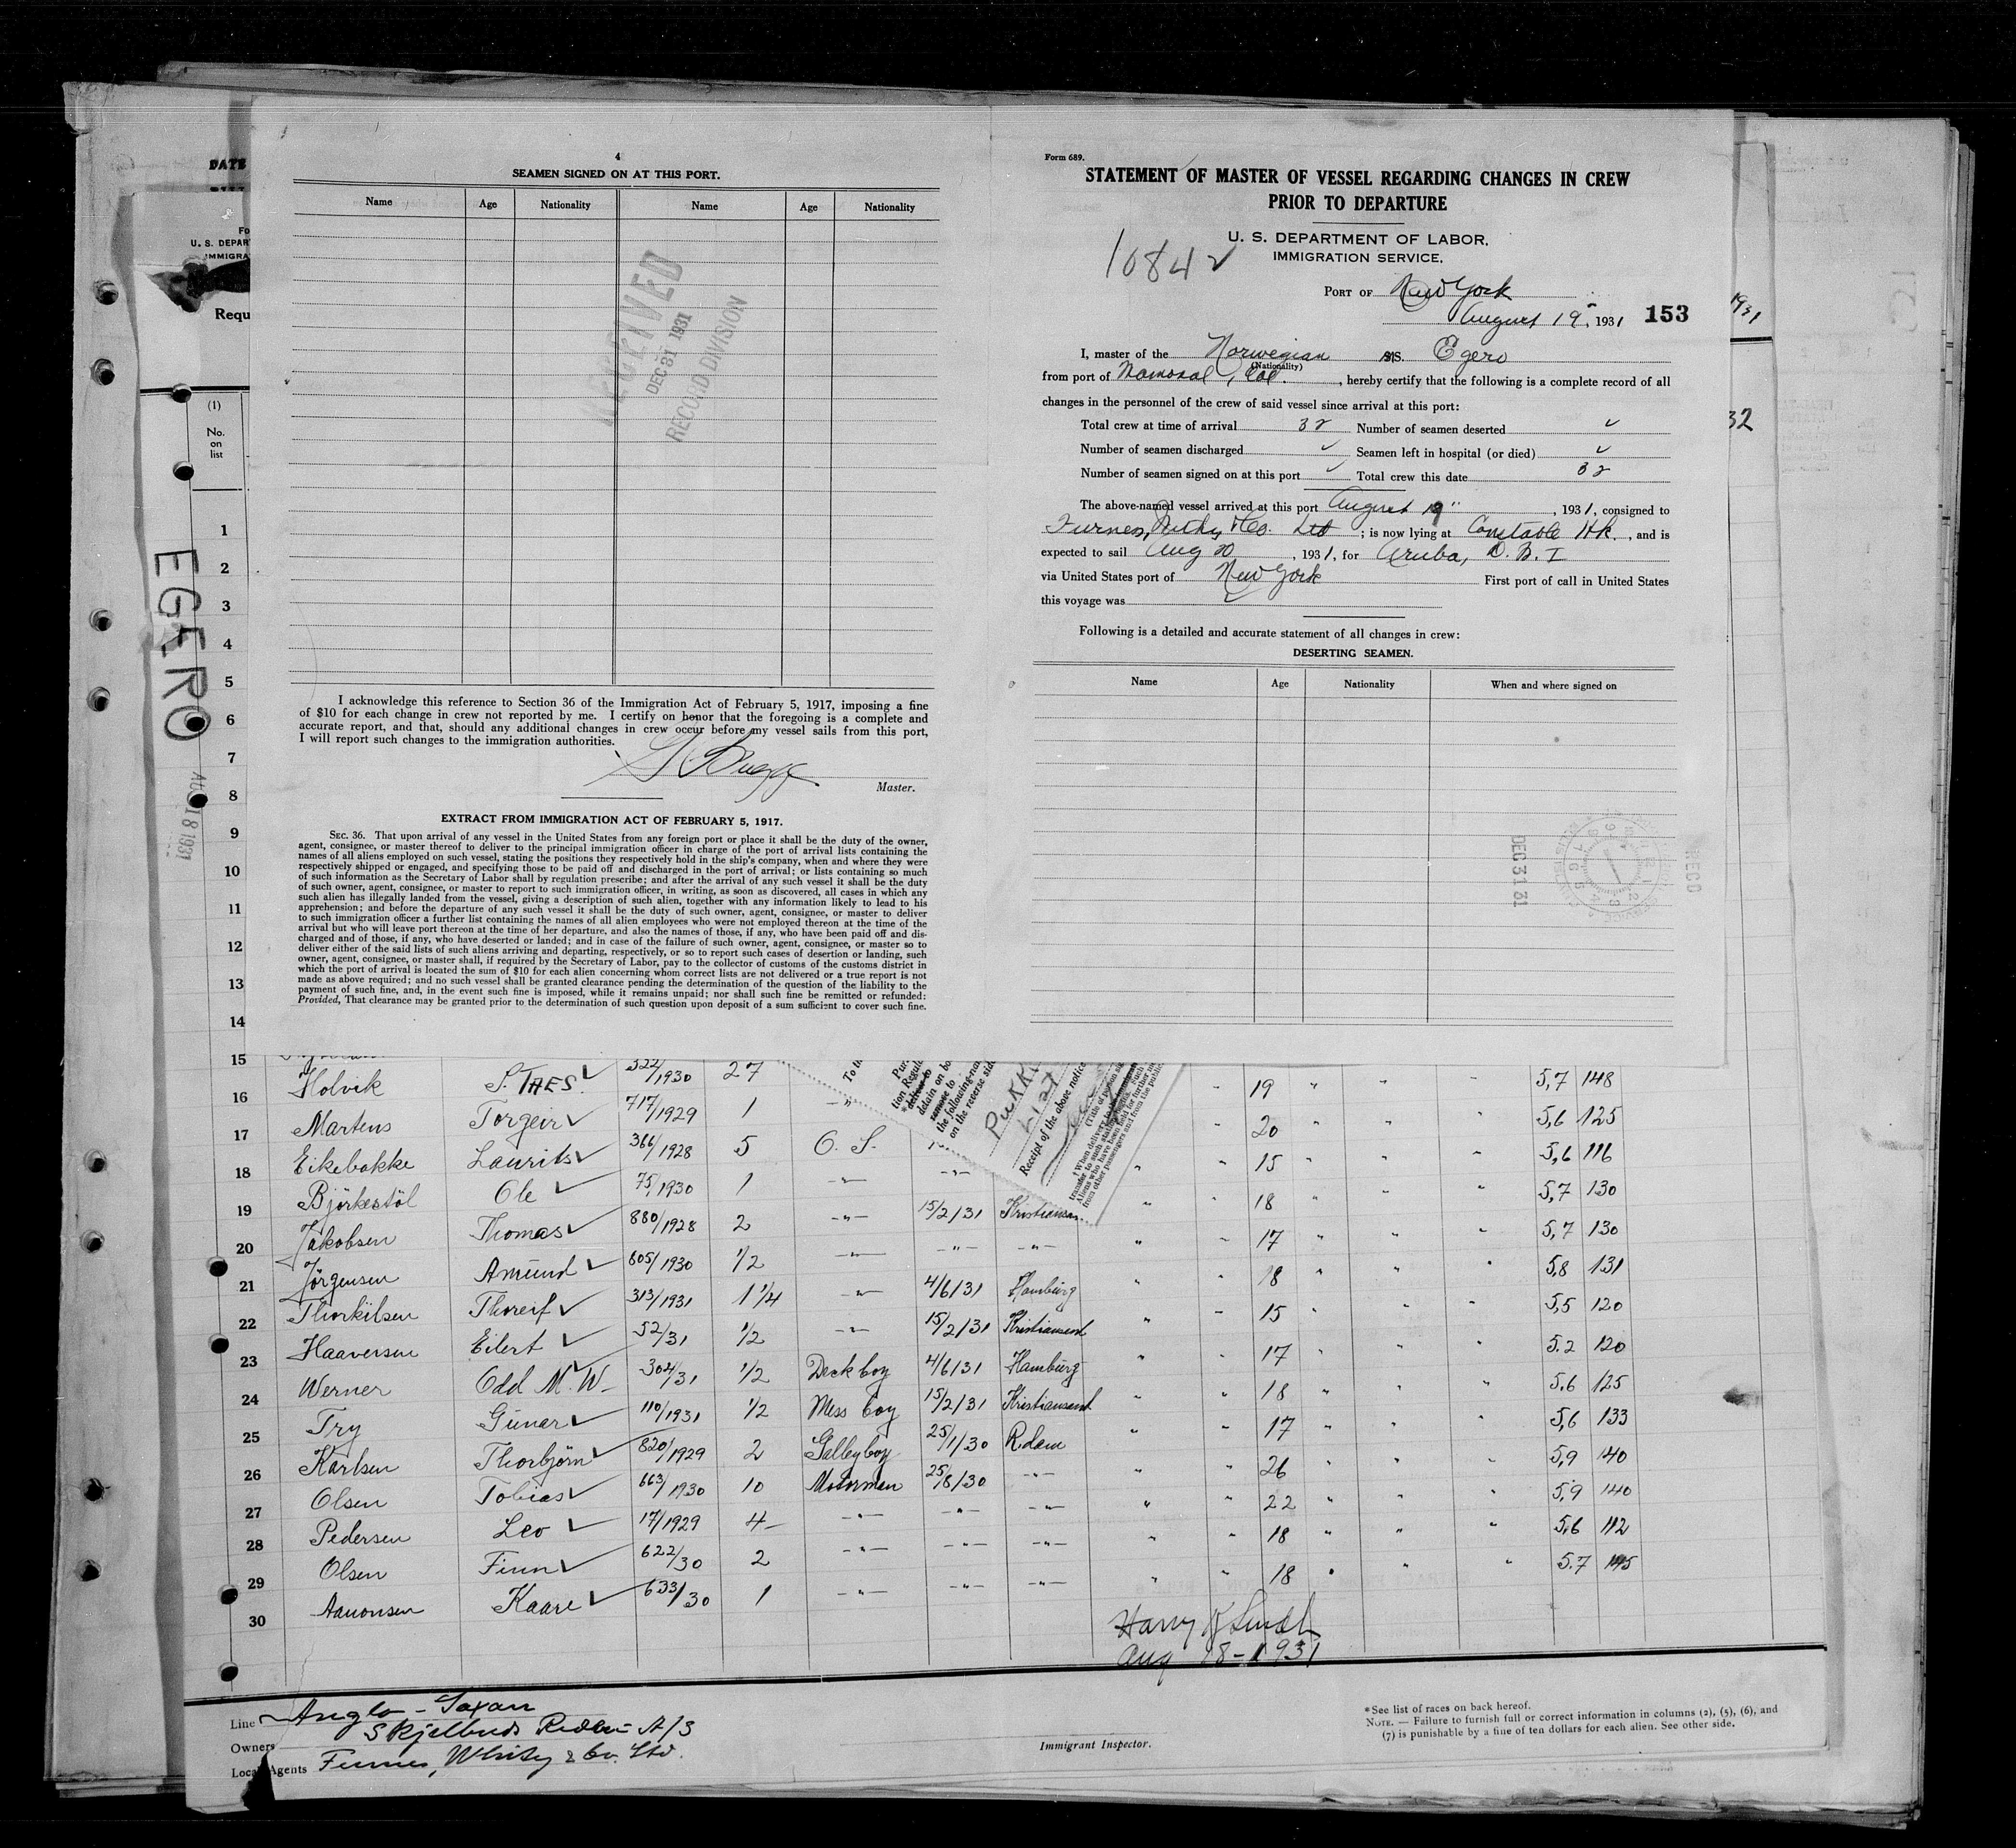 4
SEAMEN SIGNED ON AT THIS PORT.
Name Age Nationality Name Age Nationality
RECEIVED
DEC 31 1931
RECORD DIVISION
I acknowledge this reference to Section 36 of the Immigration Act of February 5, 1917, imposing a fine
of $10 for each change in crew not reported by me. I certify on honor that the foregoing is a complete and
accurate report, and that, should any additional changes in crew occur before my vessel sails from this port,
I will report such changes to the immigration authorities.
Master.
EXTRACT FROM IMMIGRATION ACT OF FEBRUARY 5, 1917.
SEC. 36. That upon arrival of any vessel in the United States from any foreign port or place it shall be the duty of the owner,
agent, consignee, or master thereof to deliver to the principal immigration officer in charge of the port of arrival lists containing the
names of all aliens employed on such vessel, stating the positions they respectively hold in the ship's company, when and where they were
respectively shipped or engaged, and specifying those to be paid off and discharged in the port of arrival; or lists containing so much
of such information as the Secretary of Labor shall by regulation prescribe; and after the arrival of any such vessel it shall be the duty
of such owner, agent, consignee, or master to report to such immigration officer, in writing, as soon as discovered, all cases in which any
such alien has illegally landed from the vessel, giving a description of such alien, together with any information likely to lead to his
apprehension; and before the departure of any such vessel it shall be the duty of such owner, agent, consignee, or master to deliver
to such immigration officer a further list containing the names of all alien employees who were not employed thereon at the time of the
arrival but who will leave port thereon at the time of her departure, and also the names of those, if any, who have been paid off and dis-
charged and of those, if any, who have deserted or landed; and in case of the failure of such owner, agent, consignee, or master so to
deliver either of the said lists of such aliens arriving and departing, respectively, or so to report such cases of desertion or landing, such
owner, agent, consignee, or master shall, if required by the Secretary of Labor, pay to the collector of customs of the customs district in
which the port of arrival is located the sum of $10 for each alien concerning whom correct lists are not delivered or a true report is not
made as above required; and no such vessel shall be granted clearance pending the determination of the question of the liability to the
payment of such fine, and, in the event such fine is imposed, while it remains unpaid; nor shall such fine be remitted or refunded:
Provided, That clearance may be granted prior to the determination of such question upon deposit of a sum sufficient to cover such fine.
Form 689.
STATEMENT OF MASTER OF VESSEL REGARDING CHANGES IN CREW
PRIOR TO DEPARTURE
U. S. DEPARTMENT OF LABOR,
IMMIGRATION SERVICE.
10842
PORT OF New York
August 19, 1931 153
I, master of the Norwegian MS. Egero
(Nationality)
from port of Mamonal, Col., hereby certify that the following is a complete record of all
changes in the personnel of the crew of said vessel since arrival at this port:
Total crew at time of arrival 32 Number of seamen deserted ✓
Number of seamen discharged ✓ Seamen left in hospital (or died) ✓
Number of seamen signed on at this port ✓ Total crew this date 32
The above-named vessel arrived at this port August 19", 1931, consigned to
Furness, Withy & Co. Ltd; is now lying at Constable Hk., and is
expected to sail Aug 20, 1931, for Aruba, D. W. I
via United States port of New York First port of call in United States
this voyage was
Following is a detailed and accurate statement of all changes in crew:
DESERTING SEAMEN.
Name Age Nationality When and where signed on
DEC 31 31
RECD
DATE
U. S. DEPAR
IMMIGRA
Requ
(1)
No.
on
list
EGERO
AUG 18 1931
1931
32
1
2
3
4
5
6
7
8
9
10
11
12
13
14
15
16 Holvik S. THES. ✓ 322/1930 27 19 " " " 5,7 148
17 Martens Torgeir ✓ 717/1929 1 -"- 20 " " " 5,6 125
18 Eikebakke Laurits ✓ 366/1928 5 O. S. 15 " " " 5,6 116
19 Björkestöl Ole ✓ 75/1930 1 -"- -"- 18 " " " 5,7 130
20 Jakobsen Thomas ✓ 880/1928 2 -"- 15/2/31 Kristiansan 17 " " " 5,7 130
21 Jörgensen Amund ✓ 605/1930 1/2 -"- -"- -"- 18 " " " 5,8 131
22 Thorkilsen Thoreif ✓ 313/1931 1 1/4 -"- 4/6/31 Hamburg 15 " " " 5,5 120
23 Haaversen Eilert ✓ 52/31 1/2 -"- 15/2/31 Kristiansand 17 " " " 5.2 120
24 Werner Odd M. W. 304/31 1/2 Deck boy 4/6/31 Hamburg 18 " " " 5.6 125
25 Try Gunar ✓ 110/1931 1/2 Mess boy 15/2/31 Kristiansand 17 " " " 5,6 133
26 Karlsen Thorbjörn ✓ 820/1929 2 Galleyboy 25/1/30 R.dam 26 " " " 5,9 140
27 Olsen Tobias ✓ 663/1930 10 Motorman 25/8/30 -"- 22 " " " 5,9 140
28 Pedersen Leo ✓ 17/1929 4 -"- -"- -"- 18 " " " 5.6 112
29 Olsen Finn ✓ 622/30 2 -"- -"- -"- 18 " " " 5.7 145
30 Aanonsen Kaare ✓ 633/30 1 -"- -"- -"-
Receipt of the above notice
Aug 18-1931
Line Anglo-Saxon
Owners Skjelbreds Rederi A/S
Local Agents Furness, Whitey & Co. Ltd.
Immigrant Inspector.
*See list of races on back hereof.
NOTE. — Failure to furnish full or correct information in columns (2), (5), (6), and
(7) is punishable by a fine of ten dollars for each alien. See other side.